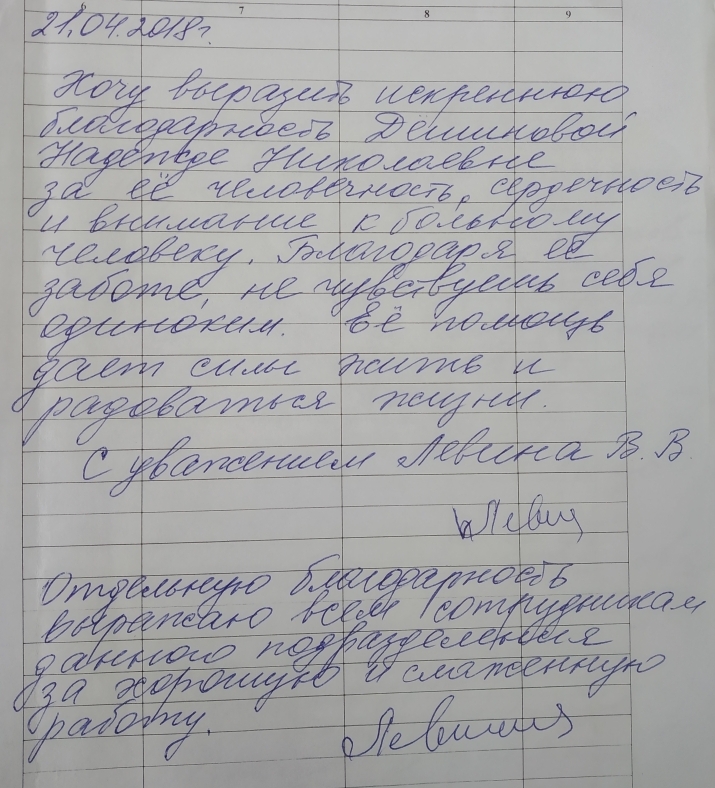 6 7 8 9
21.04.2018г.
Хочу выразить искреннюю
благодарность Дёшиновой
Надежде Николаевне
за её человечность, сердечность
и внимание к больному
человеку. Благодаря её
заботе, не чувствуешь себя
одиноким. Её помощь
дает силы жить и
радоваться жизни.
С уважением Левина В. В.
Отдельную благодарность
выражаю всем сотрудникам
данного подразделения
за хорошую и слаженную
работу.